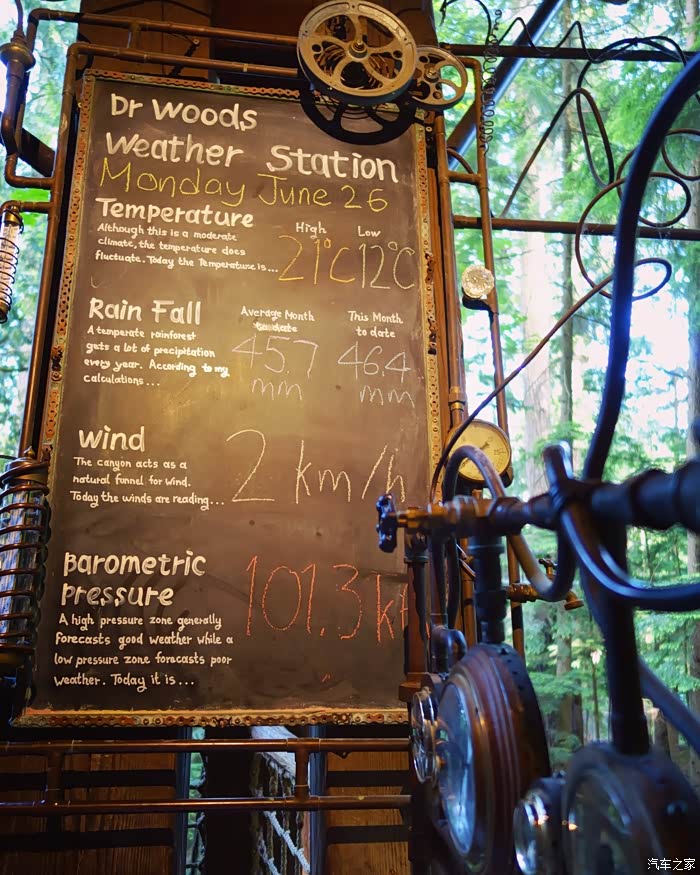 Dr Woods
Weather Station
Monday June 26
Temperature
Although this is a moderate
climate, the temperature does
fluctuate. Today the Temperature is...
High Low
21°C 12°C
Rain Fall
A temperate rainforest
gets a lot of precipitation
every year. According to my
calculations...
Average Month
to date
45.7
mm
This Month
to date
46.4
mm
Wind
The canyon acts as a
natural funnel for wind.
Today the winds are reading...
2 km/h
Barometric
Pressure
A high pressure zone generally
forecasts good weather while a
low pressure zone forecasts poor
weather. Today it is...
101.3
汽车之家